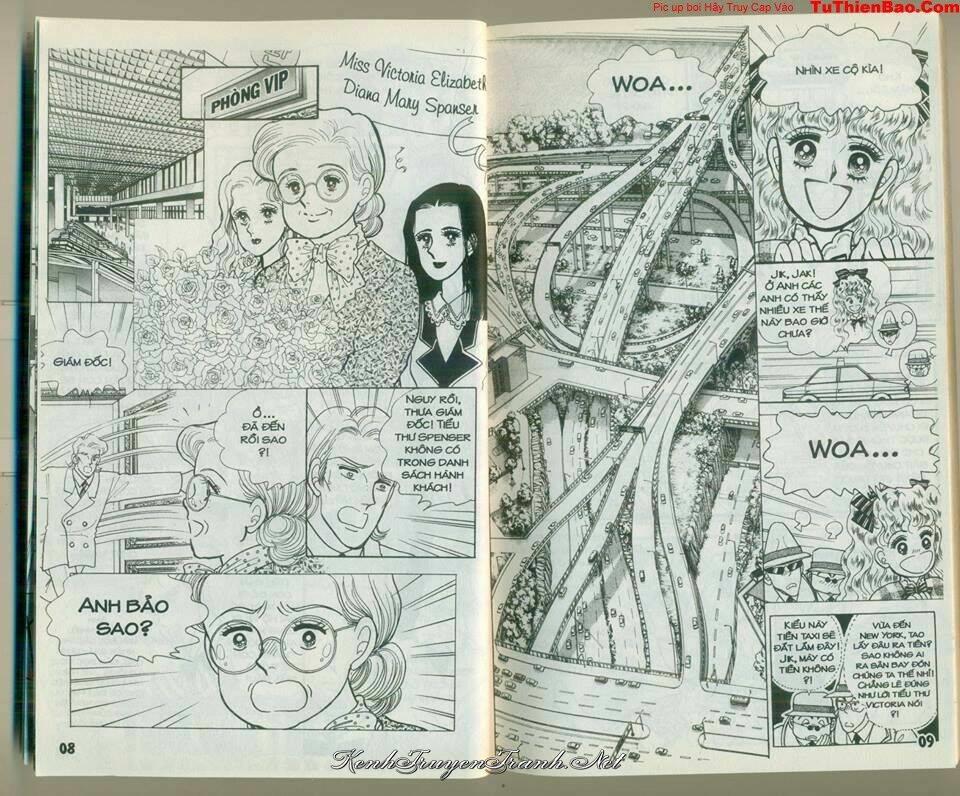 Pic up boi Hãy Truy Cap Vào TuThienBao.Com
PHÒNG VIP
Miss Victoria Elizabeth
Diana Mary Spanser
GIÁM ĐỐC!
NGUY RỒI,
THƯA GIÁM
ĐỐC! TIỂU
THƯ SPENSER
KHÔNG CÓ
TRONG DANH
SÁCH HÀNH
KHÁCH!
Ở...
ĐÃ ĐẾN
RỒI SAO
?!
ANH BẢO
SAO?
08
WOA...
NHÌN XE CỘ KÌA!
JIK, JAK!
Ở ANH CÁC
ANH CÓ THẤY
NHIỀU XE THẾ
NÀY BAO GIỜ
CHƯA?
WOA...
KIỂU NÀY
TIỀN TAXI SẼ
ĐẮT LẮM ĐÂY!
JIK, MÀY CÓ
TIỀN KHÔNG
?!
VỪA ĐẾN
NEW YORK, TAO
LẤY ĐÂU RA TIỀN?
SAO KHÔNG AI
RA SÂN BAY ĐÓN
CHÚNG TA THẾ NHỈ!
CHẲNG LẼ ĐÚNG
NHƯ LỜI TIỂU THƯ
VICTORIA NÓI
?!
09
KenhTruyenTranh.Net